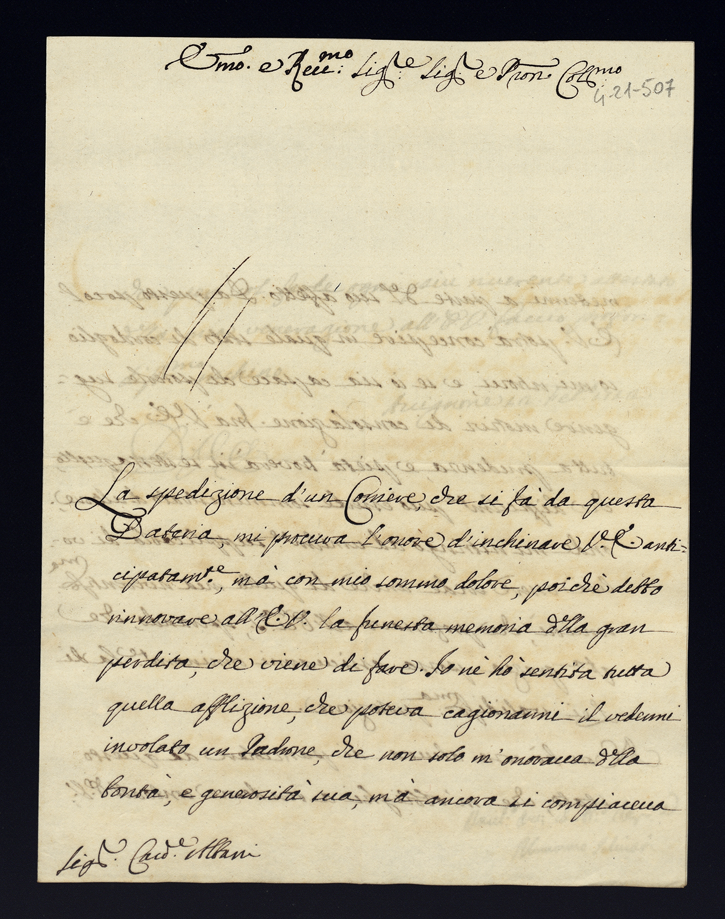 Emo. e Reumo: Sigre: Sigr: e Pron Colmo
4-21-507
La spedizione d'un Corriere che si fà da questa
Dateria, mi procura l'onore d'inchinare V.E. anti=
cipatamte, mà con mio sommo dolore, poichè debbo
rinnovare all'E.V. la funesta memoria dlla gran
perdita, che viene di fare. Io nè hò sentita tutta
quella afflizione, che poteva cagionarmi il vedermi
involato un Padrone, che non solo m'onoraua dlla
bontà, e generosità sua, mà ancora si compiaceua
Sigr. Card.e Albani